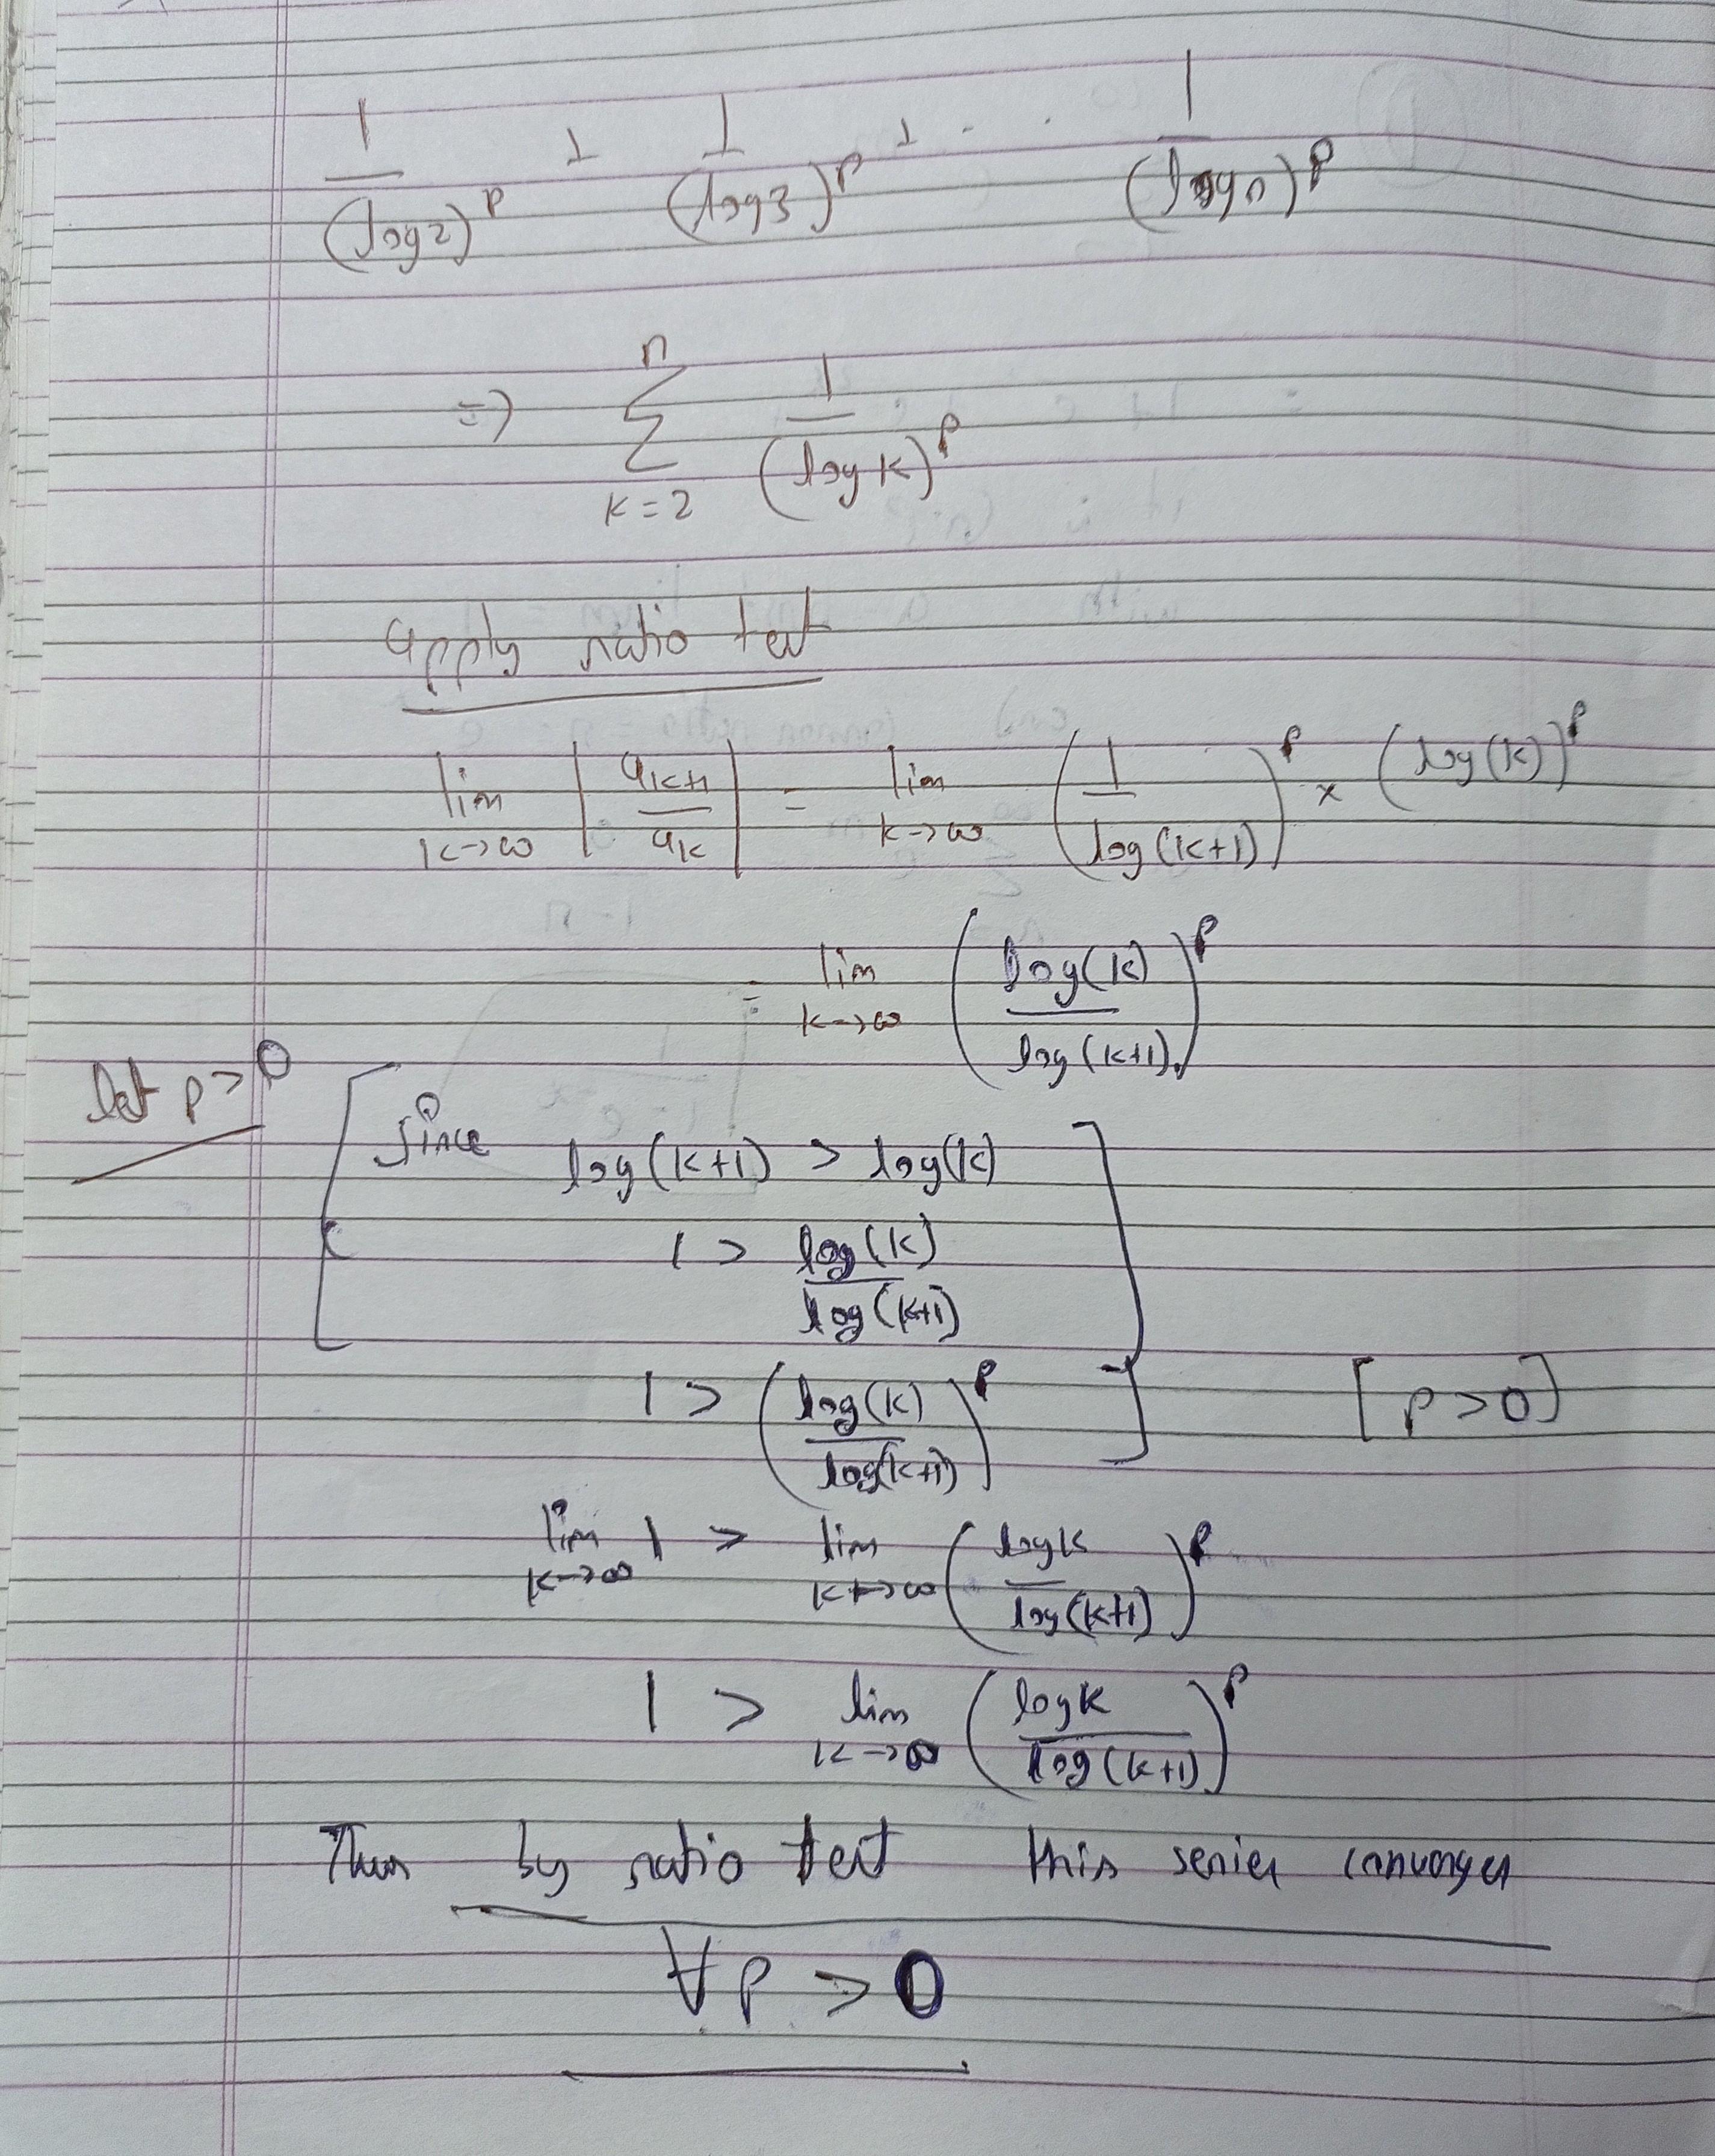 1/(log2)^p + 1/(log3)^p + . . 1/(logn)^p
=> n Σ k=2 1/(log k)^p
apply ratio test
lim k→∞ | a_{k+1} / a_k | = lim k→∞ (1/log(k+1))^p × (log(k))^p
= lim k→∞ (log(k)/log(k+1))^p
let p>0
Since log(k+1) > log(k)
1 > log(k)/log(k+1)
1 > (log(k)/log(k+1))^p [p>0]
lim k→∞ 1 > lim k→∞ (logk/log(k+1))^p
1 > lim k→∞ (logk/log(k+1))^p
Thus by ratio test this series converges
∀ p > 0